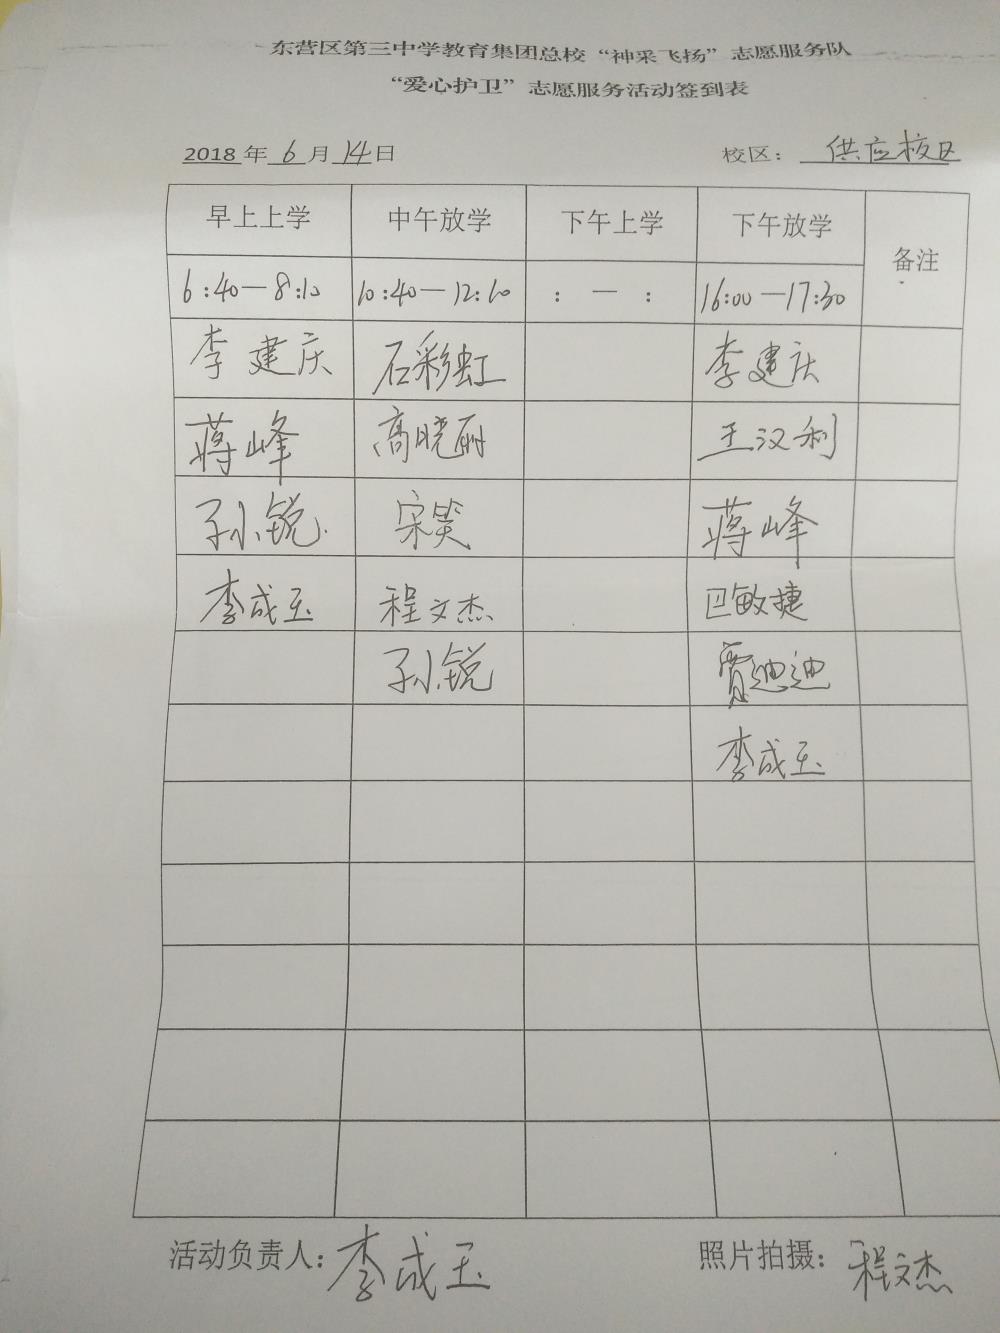 东营区第三中学教育集团总校“神采飞扬”志愿服务队
“爱心护卫”志愿服务活动签到表
2018 年 6 月 14 日 校区： 供应校区
早上上学 中午放学 下午上学 下午放学 备注
6:40—8:10 10:40—12:10 : — : 16:00—17:30
李建庆 石彩虹 李建庆
蒋峰 高晓丽 王汉利
孙锐 宋笑 蒋峰
李成玉 程文杰 巴敏捷
孙锐 贾迪迪
李成玉
活动负责人：李成玉 照片拍摄：程文杰